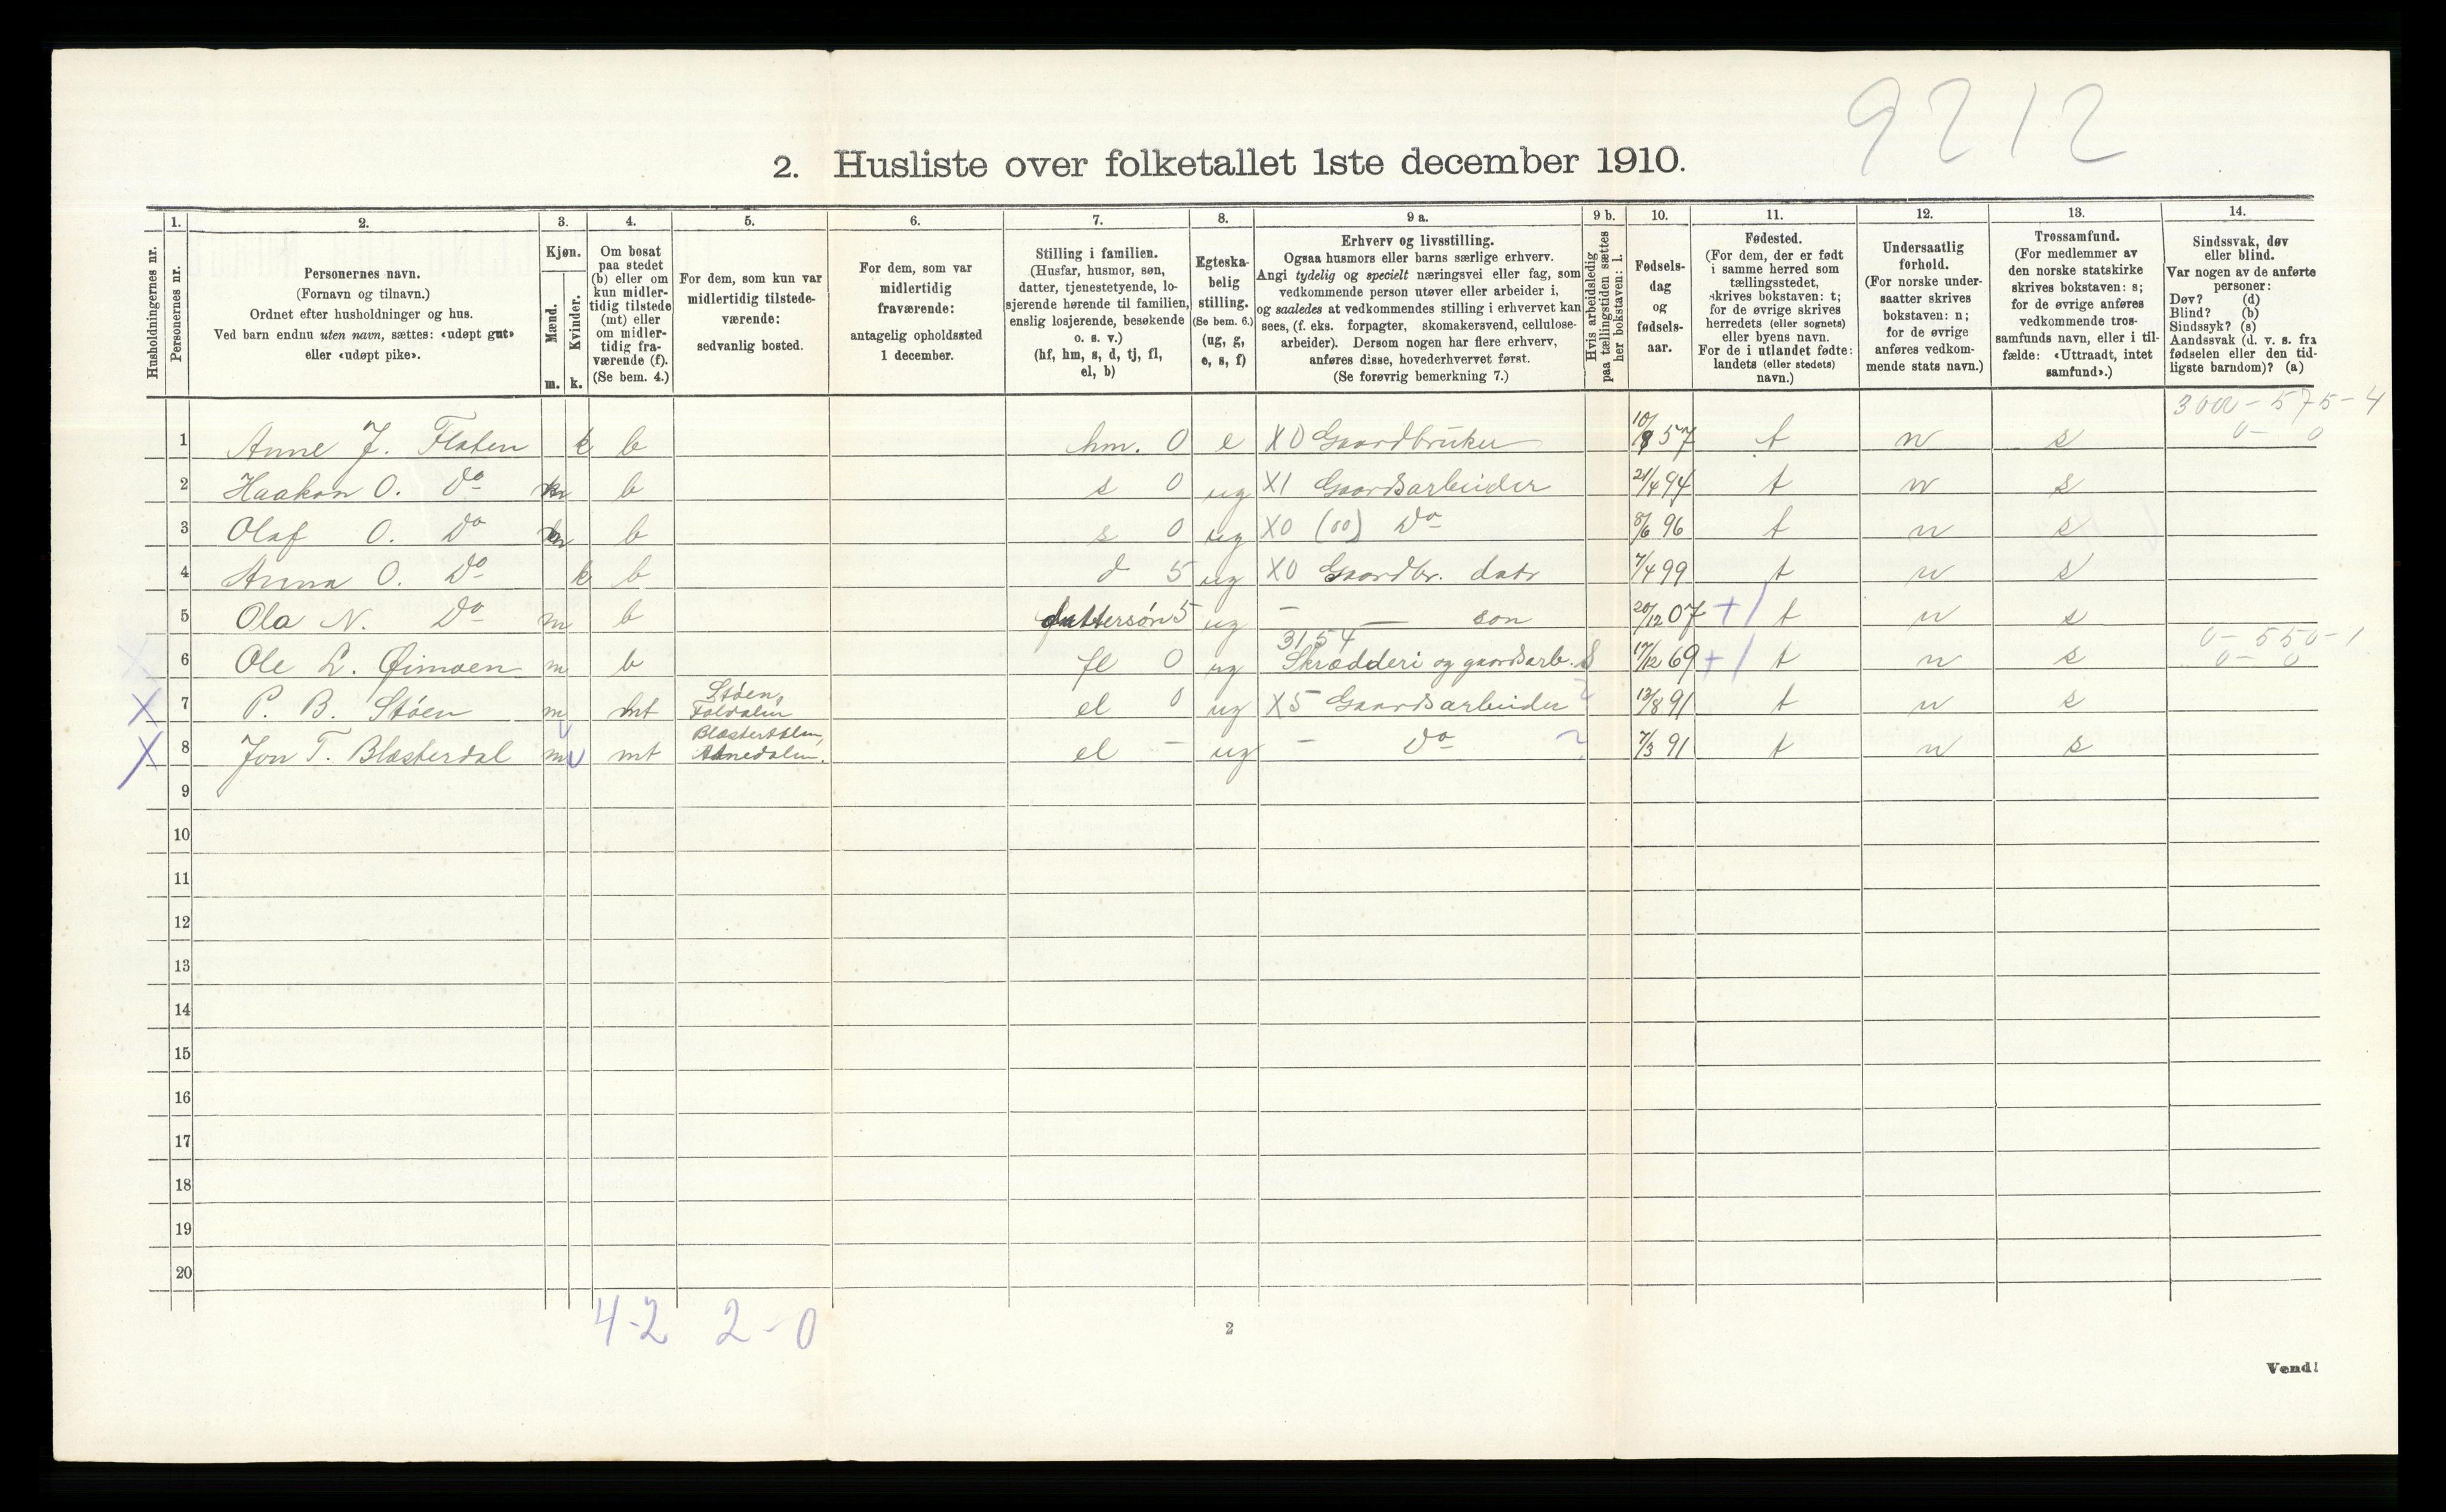 9212
2. Husliste over folketallet 1ste december 1910.
Husholdningernes nr.
1.
Personernes nr.
2.
Personernes navn.
(Fornavn og tilnavn.)
Ordnet efter husholdninger og hus.
Ved barn endnu uten navn, sættes: «udøpt gut»
eller «udøpt pike».
3.
Kjøn.
Mænd.
m.
Kvinder.
k.
4.
Om bosat
paa stedet
(b) eller om
kun midler-
tidig tilstede
(mt) eller
om midler-
tidig fra-
værende (f).
(Se bem. 4.)
5.
For dem, som kun var
midlertidig tilstede-
værende:
sedvanlig bosted.
6.
For dem, som var
midlertidig
fraværende:
antagelig opholdssted
1 december.
7.
Stilling i familien.
(Husfar, husmor, søn,
datter, tjenestetyende, lo-
sjerende hørende til familien,
enslig losjerende, besøkende
o. s. v.)
(hf, hm, s, d, tj, fl,
el, b)
8.
Egteska-
belig
stilling.
(Se bem. 6.)
(ug, g,
e, s, f)
9 a.
Erhverv og livsstilling.
Ogsaa husmors eller barns særlige erhverv.
Angi tydelig og specielt næringsvei eller fag, som
vedkommende person utøver eller arbeider i,
og saaledes at vedkommendes stilling i erhvervet kan
sees, (f. eks. forpagter, skomakersvend, cellulose-
arbeider). Dersom nogen har flere erhverv,
anføres disse, hovederhvervet først.
(Se forøvrig bemerkning 7.)
9 b.
Hvis arbeidsledig
paa tællingstiden sættes
her bokstaven: l.
10.
Fødsels-
dag
og
fødsels-
aar.
11.
Fødested.
(For dem, der er født
i samme herred som
tællingsstedet,
skrives bokstaven: t;
for de øvrige skrives
herredets (eller sognets)
eller byens navn.
For de i utlandet fødte:
landets (eller stedets)
navn.)
12.
Undersaatlig
forhold.
(For norske under-
saatter skrives
bokstaven: n;
for de øvrige
anføres vedkom-
mende stats navn.)
13.
Trossamfund.
(For medlemmer av
den norske statskirke
skrives bokstaven: s;
for de øvrige anføres
vedkommende tros-
samfunds navn, eller i til-
fælde: «Uttraadt, intet
samfund».)
14.
Sindssvak, døv
eller blind.
Var nogen av de anførte
personer:
Døv? (d)
Blind? (b)
Sindssyk? (s)
Aandssvak (d. v. s. fra
fødselen eller den tid-
ligste barndom)? (a)
300 - 575 - 4
0 - 0
1 Anne J. Flaten k b hm. 0 e X0 Gaardbruker 10/8 57 t n s
2 Haakon O. Do m b s 0 ug X1 Gaardsarbeider 21/4 94 t n s
3 Olaf O. Do m b s 0 ug X0 (00) Do 8/6 96 t n s
4 Anna O. Do k b d 5 ug X0 Gaardbr. datr 7/4 99 t n s
5 Ola N. Do m b dattersøn 5 ug — — son 20/12 07 +1 t n s
3154
0 - 550 - 1
6 Ole L. Øimoen m b fl 0 ug Skrædderi og gaardsarb. 17/12 69 +1 t n s 0 - 0
X 7 P. B. Støen m mt Støen, Foldalen el 0 ug X5 Gaardsarbeider 13/8 91 t n s
X 8 Jon T. Blæsterdal m mt Blæsterdalen, Atnedalen. el - ug - Do 7/3 91 t n s
9
10
11
12
13
14
15
16
17
18
19
20
4-2 2-0
2
Vend!